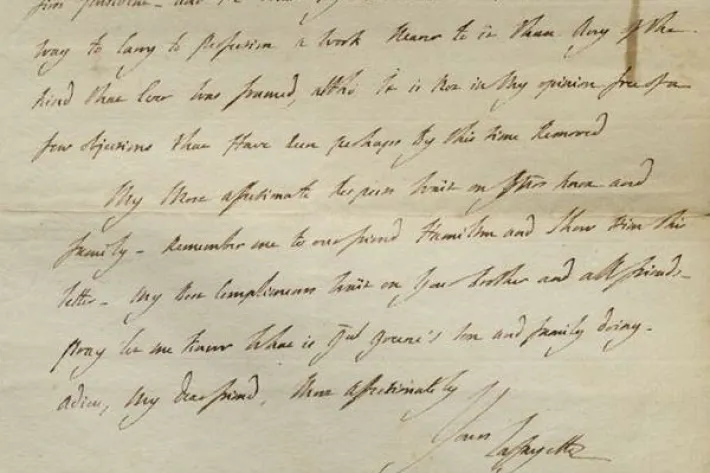 first president - and he
way to Carry to Perfection a work Nearer to it than Any of the
Kind that Ever was framed, altho It is Not in My opinion free of a
few objections that Have been perhaps By this time Removed
My Most affectionate Respects Wait on and
family - Remember me to our friend Hamilton and Show Him this
letter - My Best Compliments Wait on Your brother and all friends -
Pray let me know What is Gnl Greene's son and family doing -
adieu, My dear friend, Most affectionately
Yours
Lafayette